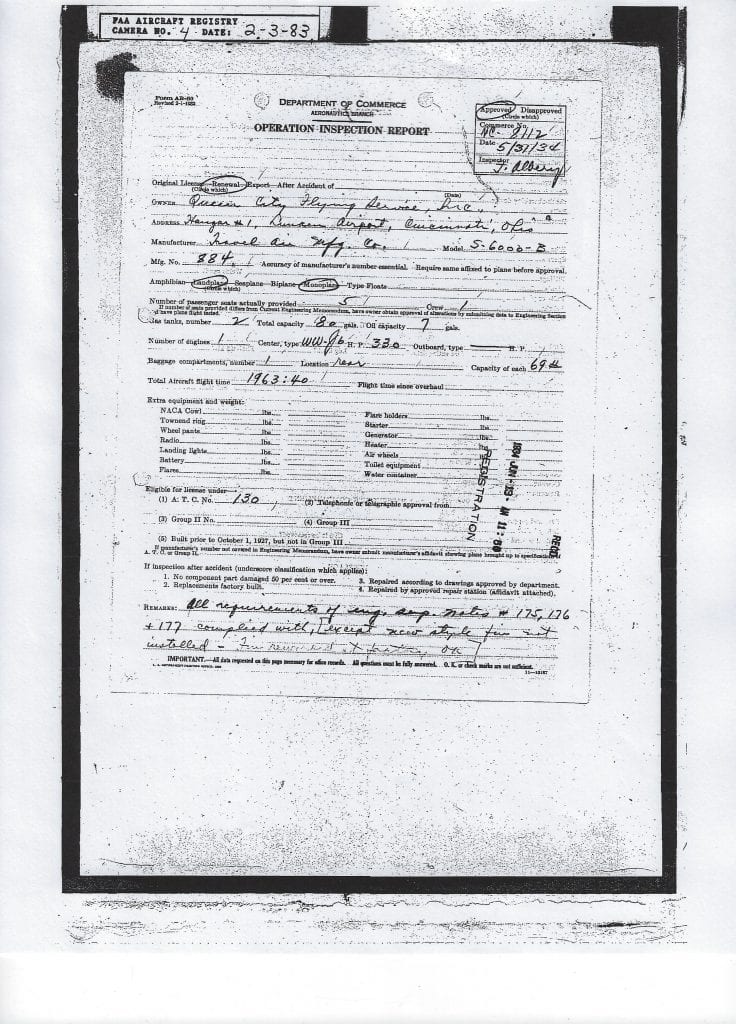 FAA AIRCRAFT REGISTRY
CAMERA NO. 4 DATE: 2-3-83
Form AB-80
DEPARTMENT OF COMMERCE
AERONAUTICS BRANCH
OPERATION INSPECTION REPORT
Approved Disapproved
(Circle which)
Commerce No.
NC- 8112
Date 5/31/34
Inspector
J. Albery
Original License—Renewal—Export—After Accident of
(Circle which) (Date)
OWNER Queen City Flying Service, Inc.,
ADDRESS Hangar #1, Lunken Airport, Cincinnati, Ohio
Manufacturer Travel Air Mfg. Co. Model S-6000-B
Mfg. No. 884. Accuracy of manufacturer's number essential. Require same affixed to plane before approval.
Amphibian—Landplane—Seaplane—Biplane—Monoplane—Type Floats
(Circle which)
Number of passenger seats actually provided 5 Crew 1
If number of seats provided differs from Current Engineering Memorandum, have owner obtain approval of alterations by submitting data to Engineering Section
have plane flight tested.
Gas tanks, number 2 Total capacity 80 gals. Oil capacity 7 gals.
Number of engines 1 Center, type WW-J6 H. P. 330 Outboard, type H. P.
Baggage compartments, number 1 Location rear Capacity of each 69 #
Total Aircraft flight time 1963:40 Flight time since overhaul
Extra equipment and weight:
NACA Cowl lbs. Flare holders lbs.
Townend ring lbs. Starter lbs.
Wheel pants lbs. Generator lbs.
Radio lbs. Heater lbs.
Landing lights lbs. Air wheels lbs.
Battery lbs. Toilet equipment
Flares lbs. Water container
REGISTRATION
1934 JUN -13-
RECD
Eligible for license under—
(1) A. T. C. No. 130 (2) Telephonic or telegraphic approval from
(3) Group II No. (4) Group III
(5) Built prior to October 1, 1927, but not in Group III
If manufacturer's number not covered in Engineering Memorandum, have owner submit manufacturer's affidavit showing plane brought up to specification of
A. T. C. or Group II.
If inspection after accident (underscore classification which applies):
1. No component part damaged 50 per cent or over. 3. Repaired according to drawings approved by department.
2. Replacements factory built. 4. Repaired by approved repair station (affidavit attached).
REMARKS: All requirements of eng. insp. notes # 175, 176
+ 177 complied with, [except new style fin not
installed —
IMPORTANT.—All data requested on this page necessary for office records. All questions must be fully answered. O. K. or check marks are not sufficient.